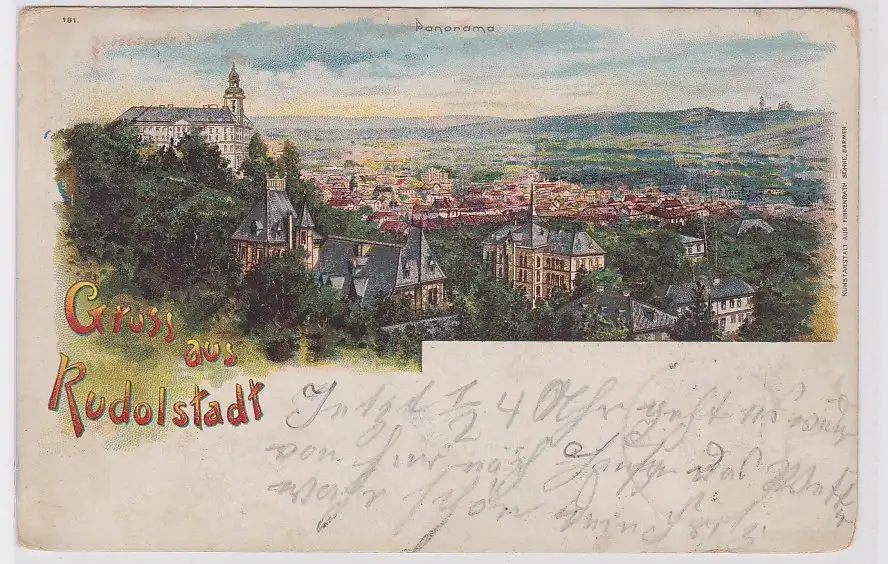 181.
Panorama
KUNSTANSTALT AUG. FINKENRATH SÖHNE, BARMEN.
Gruss
aus
Rudolstadt
Jetzt 1/2 4 Uhr geht es wieder
von hier nach das Wetter
war schön dein